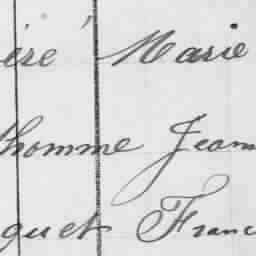 iré Marie
homme Jean
quet Franc